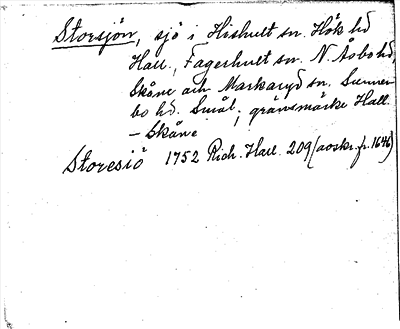 Storsjön, sjö i Hishult sn. Hök hd
Hall., Fagerhult sn. N. Åsbo hd,
Skåne och Markaryd sn. Sunner
bo hd. Smål.; gränsmärke Hall.
– Skåne
Storesiö 1752 Rich. Hall. 209 (avskr. fr. 1646)